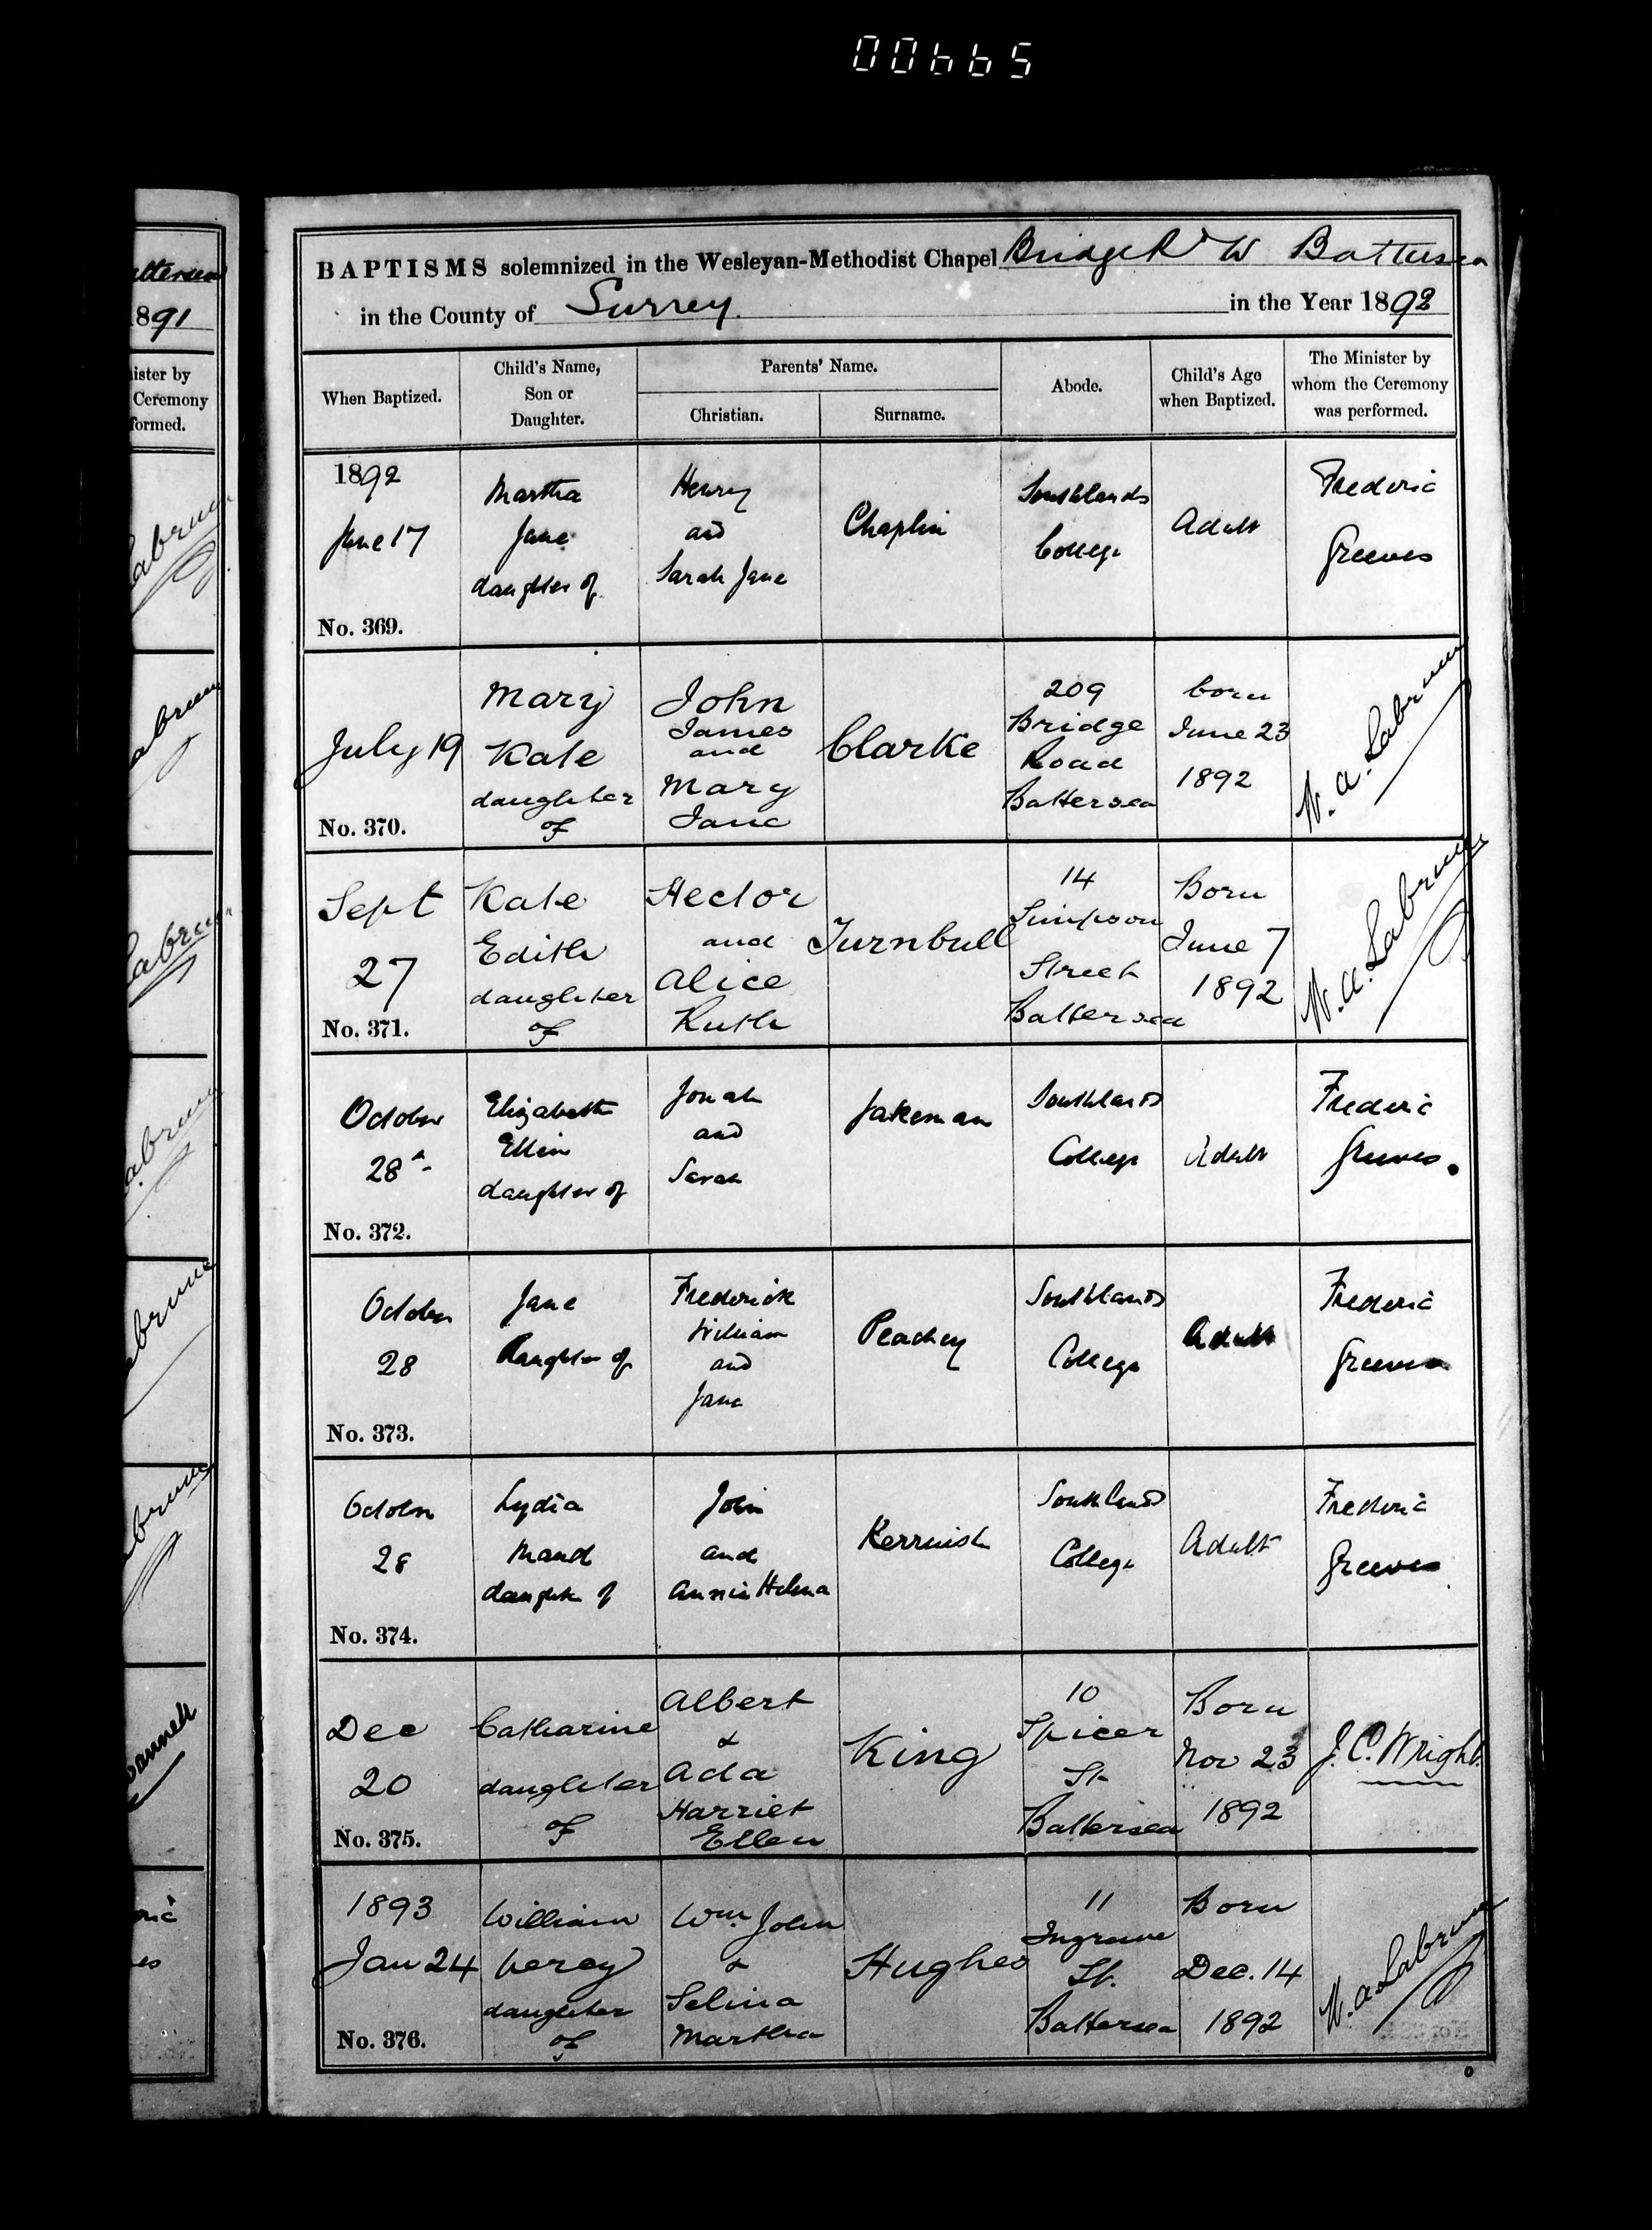 00665
BAPTISMS solemnized in the Wesleyan-Methodist Chapel Bridge Rd W Battersea
in the County of Surrey. in the Year 1892
When Baptized.
Child's Name,
Son or
Daughter.
Parents' Name.
Christian.
Surname.
Abode.
Child's Age
when Baptized.
The Minister by
whom the Ceremony
was performed.
1892
June 17
No. 369.
Martha
Jane
daughter of
Henry
and
Sarah Jane
Chaplin
Southlands
College
Adult
Frederic
Greeves
July 19
No. 370.
Mary
Kate
daughter
of
John
James
and
Mary
Jane
Clarke
209
Bridge
Road
Battersea
born
June 23
1892
W. A. Labrum
Sept
27
No. 371.
Kate
Edith
daughter
of
Hector
and
Alice
Ruth
Turnbull
14
Simpson
Street
Battersea
Born
June 7
1892
W. A. Labrum
October
28
No. 372.
Elizabeth
Ellin
daughter of
Jonah
and
Sarah
Jakeman
Southlands
College
Adult
Frederic
Greeves.
October
28
No. 373.
Jane
Daughter of
Frederick
William
and
Jane
Peachey
Southlands
College
Adult
Frederic
Greeves
October
28
No. 374.
Lydia
Maud
daughter of
John
and
Annie Helena
Kerruish
Southlands
College
Adult
Frederic
Greeves
Dec
20
No. 375.
Catharine
daughter
of
Albert
&
Ada
Harriet
Ellen
King
10
Spicer
St
Battersea
Born
Nov 23
1892
J. C. Wright.
1893
Jan 24
No. 376.
William
Percy
daughter
of
Wm. John
&
Selina
Martha
Hughes
11
Ingrave
St.
Battersea
Born
Dec. 14
1892
W. A. Labrum